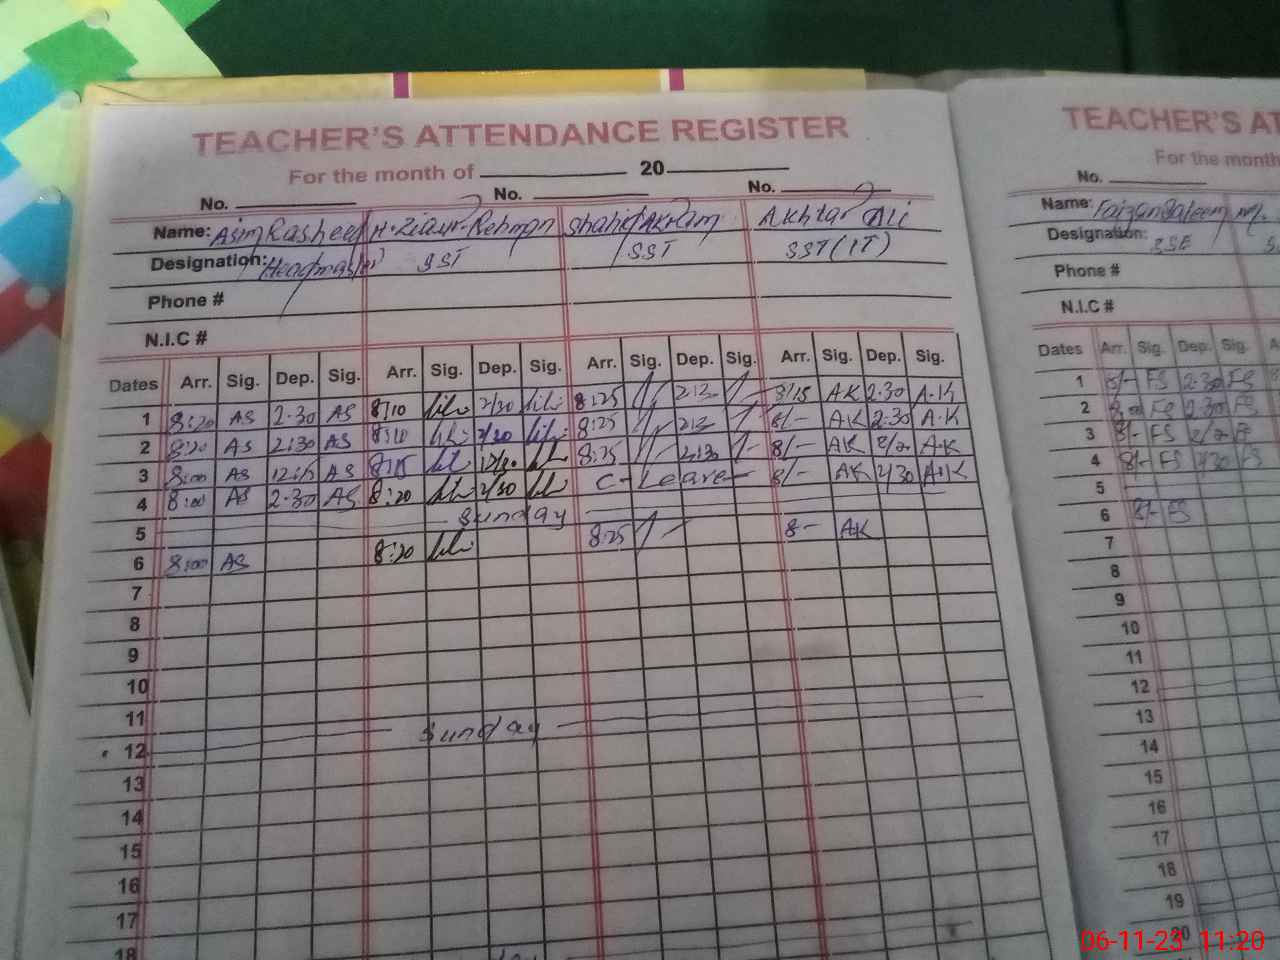 TEACHER'S ATTENDANCE REGISTER
For the month of 20
No. No. No.
Name: Asim Rasheed H. Ziaur-Rehman Shahid Akram Akhtar Ali
Designation: Headmaster SST SST SST (IT)
Phone #
N.I.C #
Dates Arr. Sig. Dep. Sig. Arr. Sig. Dep. Sig. Arr. Sig. Dep. Sig. Arr. Sig. Dep. Sig.
1 8:20 AS 2.30 AS 8/10 2/30 8:25 2:30 8/15 AK 2.30 A.K
2 8:20 AS 2:30 AS 8:10 2/30 8:25 8/- AK 2.30 A.K
3 8:00 AS AS 8:15 8:25 2:30 8/- AK A.K
4 8:00 AS 2.30 AS 8:20 2/30 C-Leave 8/- AK 2/30 A.K
5 Sunday
6 8:00 AS 8:20 8:25 8- AK
7
8
9
10
11
12 Sunday
13
14
15
16
17
18
TEACHER'S AT
For the month
No.
Name: Faizan Saleem
Designation: SSE
Phone #
N.I.C #
Dates Arr. Sig. Dep. Sig.
1 8/- FS 2.30 FS
2 8:00 FS 2:30 FS
3 8/- FS FS
4 8/- FS 2/30 FS
5
6 8/- FS
7
8
9
10
11
12
13
14
15
16
17
18
19
20
06-11-23 11:20